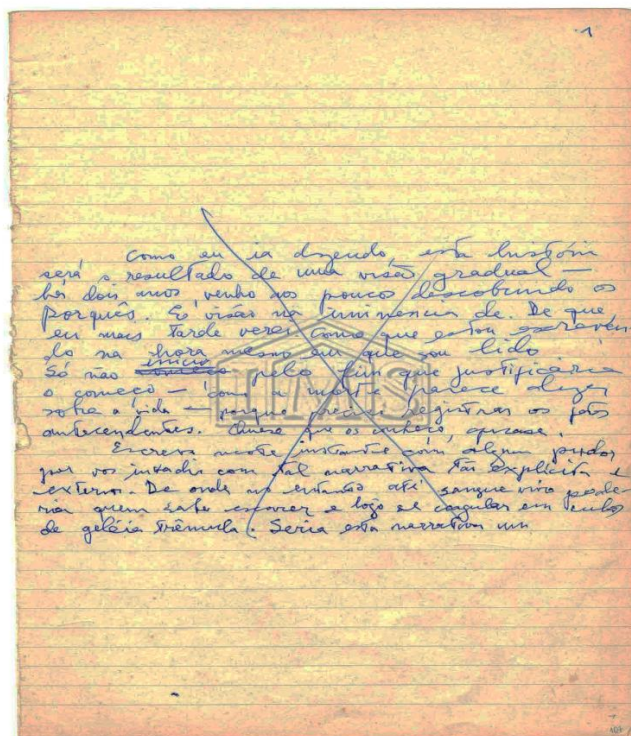 1
Como eu ia dizendo, esta história
será o resultado de uma visão gradual —
há dois anos venho aos poucos descobrindo os
porquês. É visão na iminência de. De que
eu mais tarde verei. Como que estou escreven
do na hora mesmo em que sou lido
Só não início pelo fim que justificaria
o começo — como a morte parece dizer
sobre a vida — porque preciso registrar os fatos
antecendentes. Quase que os conheço, quase.
Escrevo neste instante com algum pudor
por vos invadir com tal narrativa tão explícita e
externa. De onde no entanto até sangue vivo pode
ria quem sabe escorrer e logo se coagular em cubos
de geléia trêmula. Seria esta narrativa um
IMS